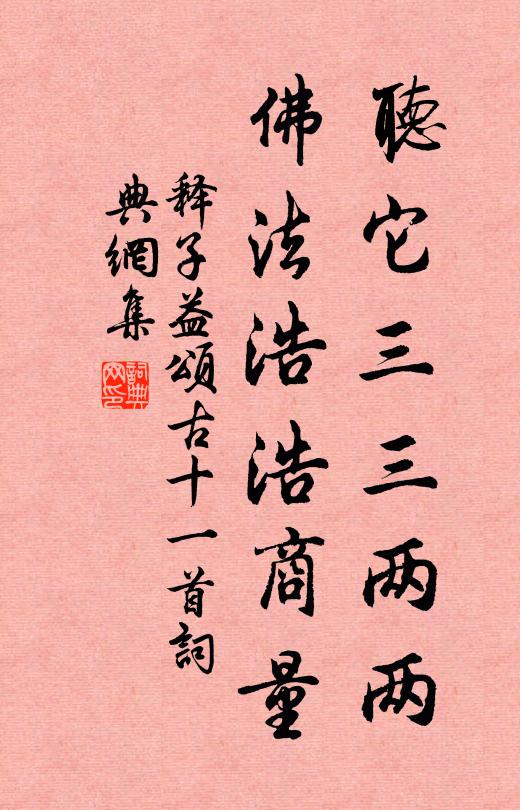 聽它三三两两
佛法浩浩商量
释子益頌古十一首詞
典網集
詞典
网印